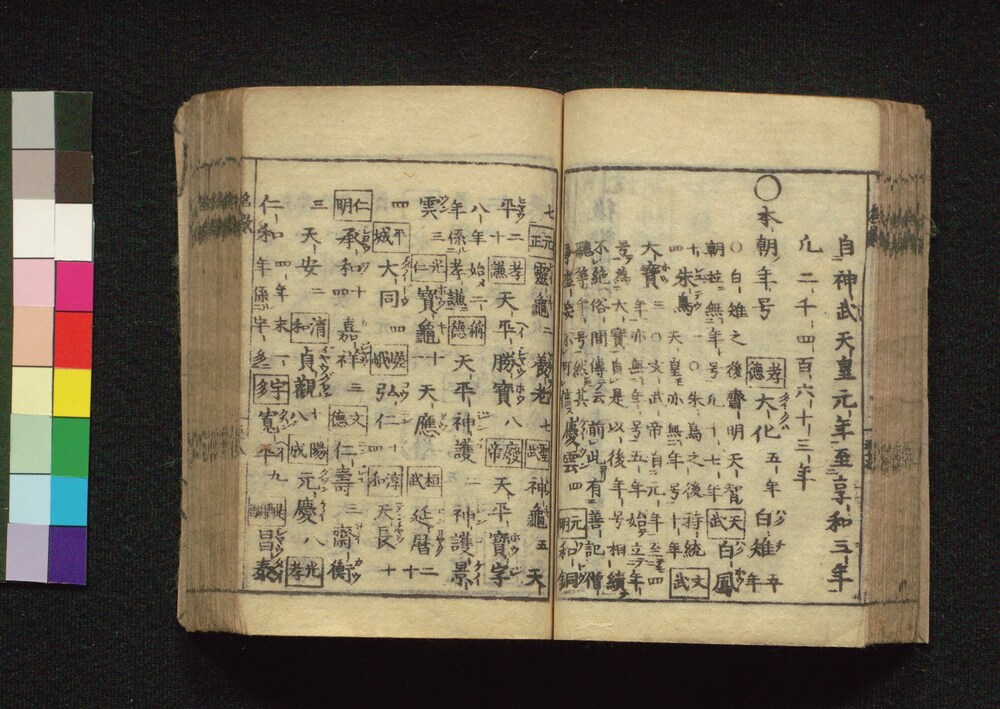 自神武天皇元年至享和三年
凡二千四百六十三年
○本朝年号 孝德 大化 五年 白雉 五年
○白雉之後齋明天智 天武 白鳳
朝並無年号 九十七年
朱鳥 ○朱鳥之後持統 文武
四 天皇亦無年号十年
大寶 三 ○文武帝自元年至四
年亦無年号五年始立年
号為大寶自是以後年号相續
不絶俗間傳云前此有善記僧
聽等年号然其
慶雲 四 元明 和銅
七 元正 靈龜 二 養老 七 聖武 神龜 五 天
平 二十 孝謙 天平勝寶 八 廢帝 天平寶字
八年始メ二 稱德 天平神護 二 神護景
年係孝謙
雲 三 光仁 寶龜 十一 天應 桓武 延曆 二十
四 平城 大同 四 嵯峨 弘仁 十四 淳和 天長 十
仁明 承和 十四 嘉祥 三 文德 仁壽 三 齋衡
三 天安 二 清和 貞觀 十八 陽成 元慶 八 光孝
仁和 四 四年末 宇多 寛平 九 醍醐 昌泰
年係宇多